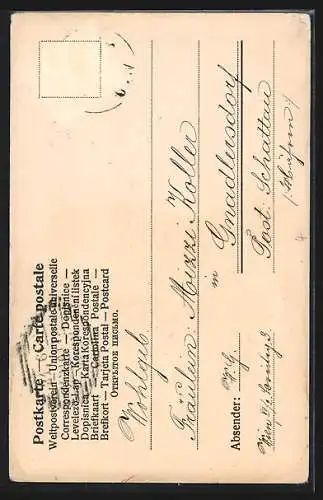 Postkarte — Carte postale
Weltpostverein — Union postale universelle
Correspondenzkarte — Dopisnice —
Levelező-Lap — Korespondenčni listek
Dopisnica — Karta Korespondencyjna
Briefkaart — Cartolina Postale —
Brefkort — Tarjeta Postal — Postcard
Открытое письмо.
Wohlgeb.
Fräulein: Mizzi Koller
in Gnadlersdorf
Post: Schattau
/Mähren/
Absender:
Wien